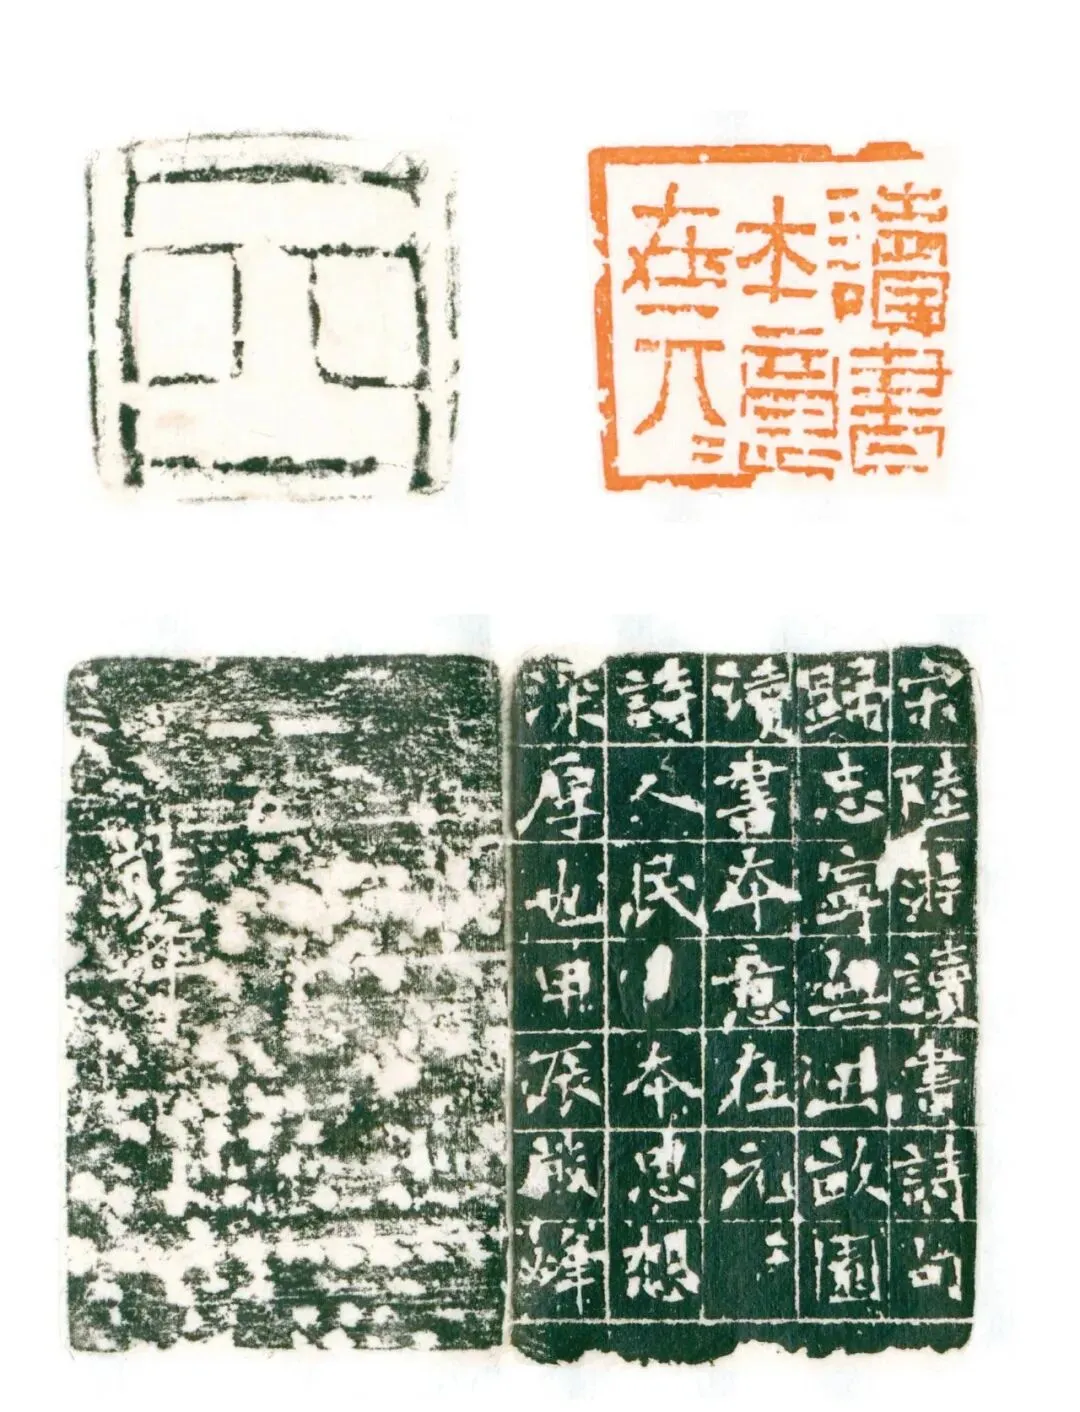 讀書
本意
在元〻
宋陸游讀書詩句
歸志寧無五畝園
讀書本意在元〻
詩人民本思想
深厚也甲辰峰